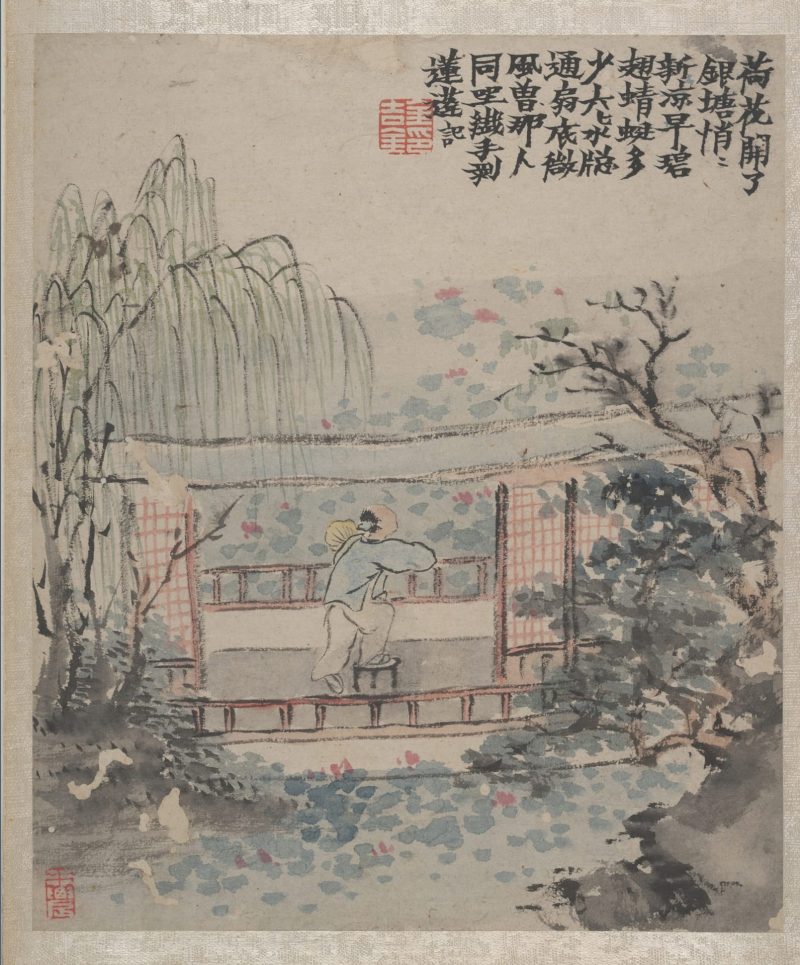 荷花開了
銀塘悄〻
新涼早碧
翅蜻蜓多
少六〻水窓
通扇底微
風曾那人
同坐纖手剥
蓮蓬記
金吉金印